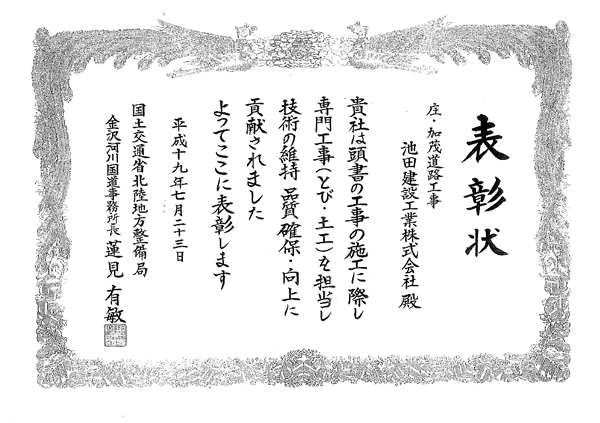 表彰状
庄・加茂道路工事
池田建設工業株式会社 殿
貴社は頭書の工事の施工に際し
専門工事(とび・土工)を担当し
技術の維持 品質確保・向上に
貢献されました
よってここに表彰します
平成十九年七月二十三日
国土交通省北陸地方整備局
金沢河川国道事務所長 蓮見 有敏